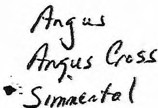 Angus
Angus Cross
Simmental